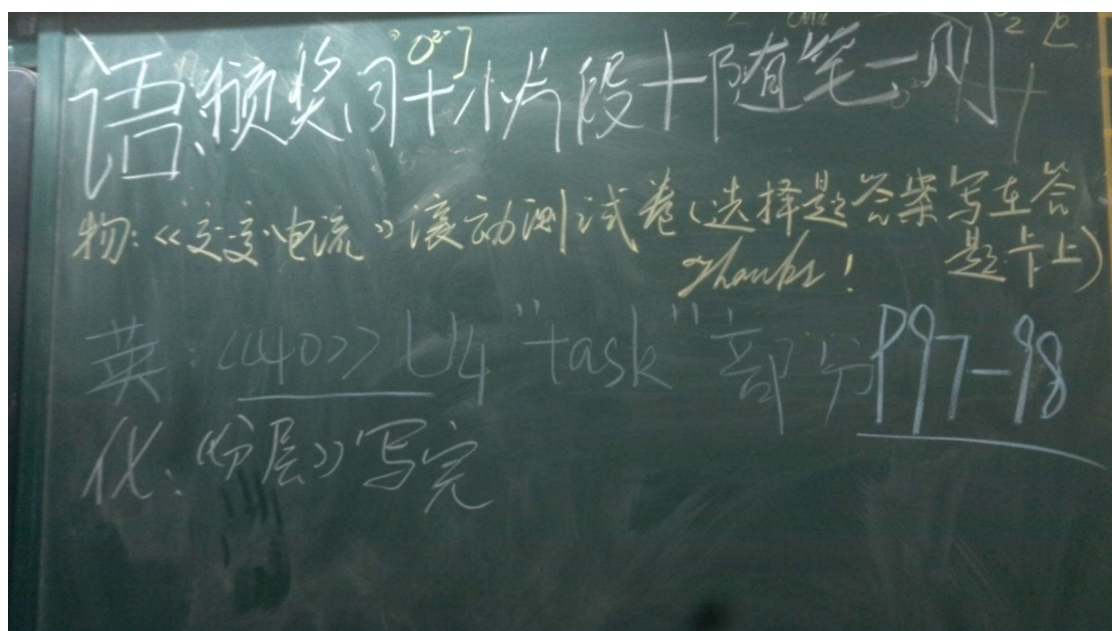 语:颁奖词+小片段+随笔一则
物:《交变电流》滚动测试卷(选择题答案写在答
题卡上)
Thanks!
英:《40》U4 "task" 部分P97-98
化:《分层》写完